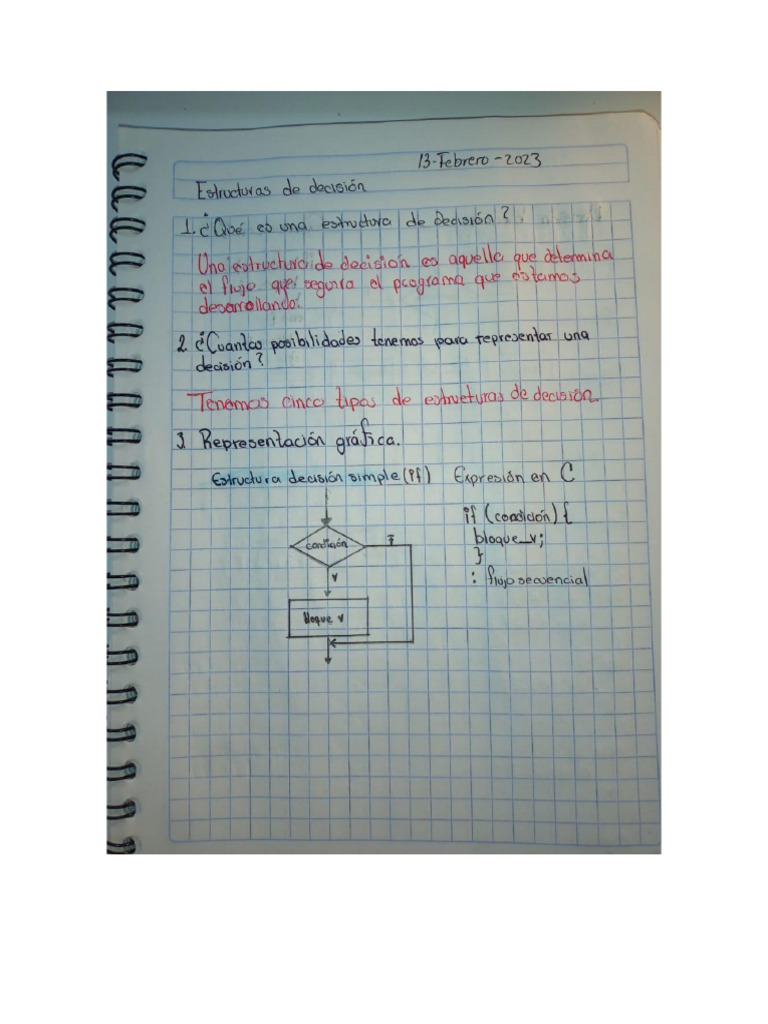 13-Febrero-2023
Estructuras de decisión
1. ¿Qué es una estructura de Decisión?
Una estructura de decisión es aquella que determina
el flujo que seguira el programa que estamos
desarrollando.
2. ¿Cuantas posibilidades tenemos para representar una
decisión?
Tenemos cinco tipos de estructuras de decisión.
3. Representación gráfica.
Estructura decisión simple (if) Expresión en C
if (condición) {
bloque_v;
}
: flujo secuencial
condición
F
v
bloque v